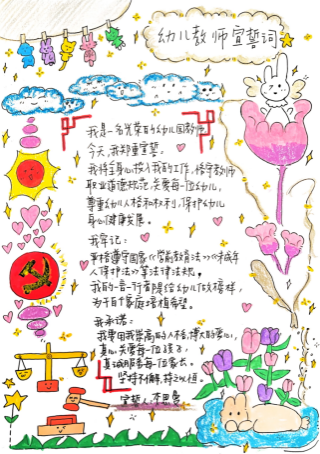 幼儿教师宣誓词
我是一名光荣的幼儿园教师
今天,我郑重宣誓。
我将全身心投入我的工作,恪守教师
职业道德规范,关爱每一位幼儿,
尊重幼儿人格和权利,保护幼儿
身心健康发展。
我牢记:
严格遵守国家《学前教育法》《未成年
人保护法》等法律法规。
我的一言一行都将给幼儿做榜样,
为千百个家庭播植希望。
我承诺:
我要用我崇高的人格,博大的爱心,
真心关爱每一位孩子,
真诚服务每一位家长。
坚持不懈,持之以恒。
宣誓人:李